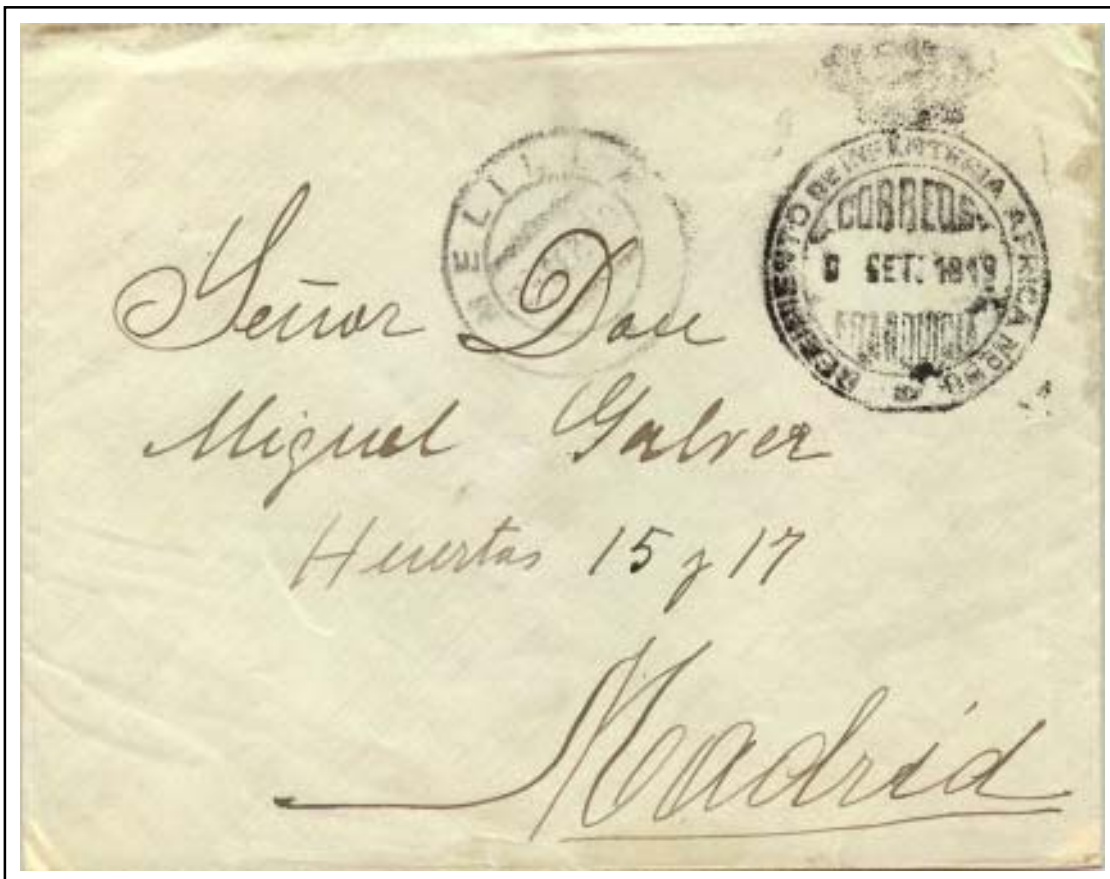 MELILLA
REGIMIENTO DE INFANTERIA AFRICA
CORREOS
SET. 1919
FRANQUICIA
Señor Don
Miguel Galvez
Huertas 15 y 17
Madrid